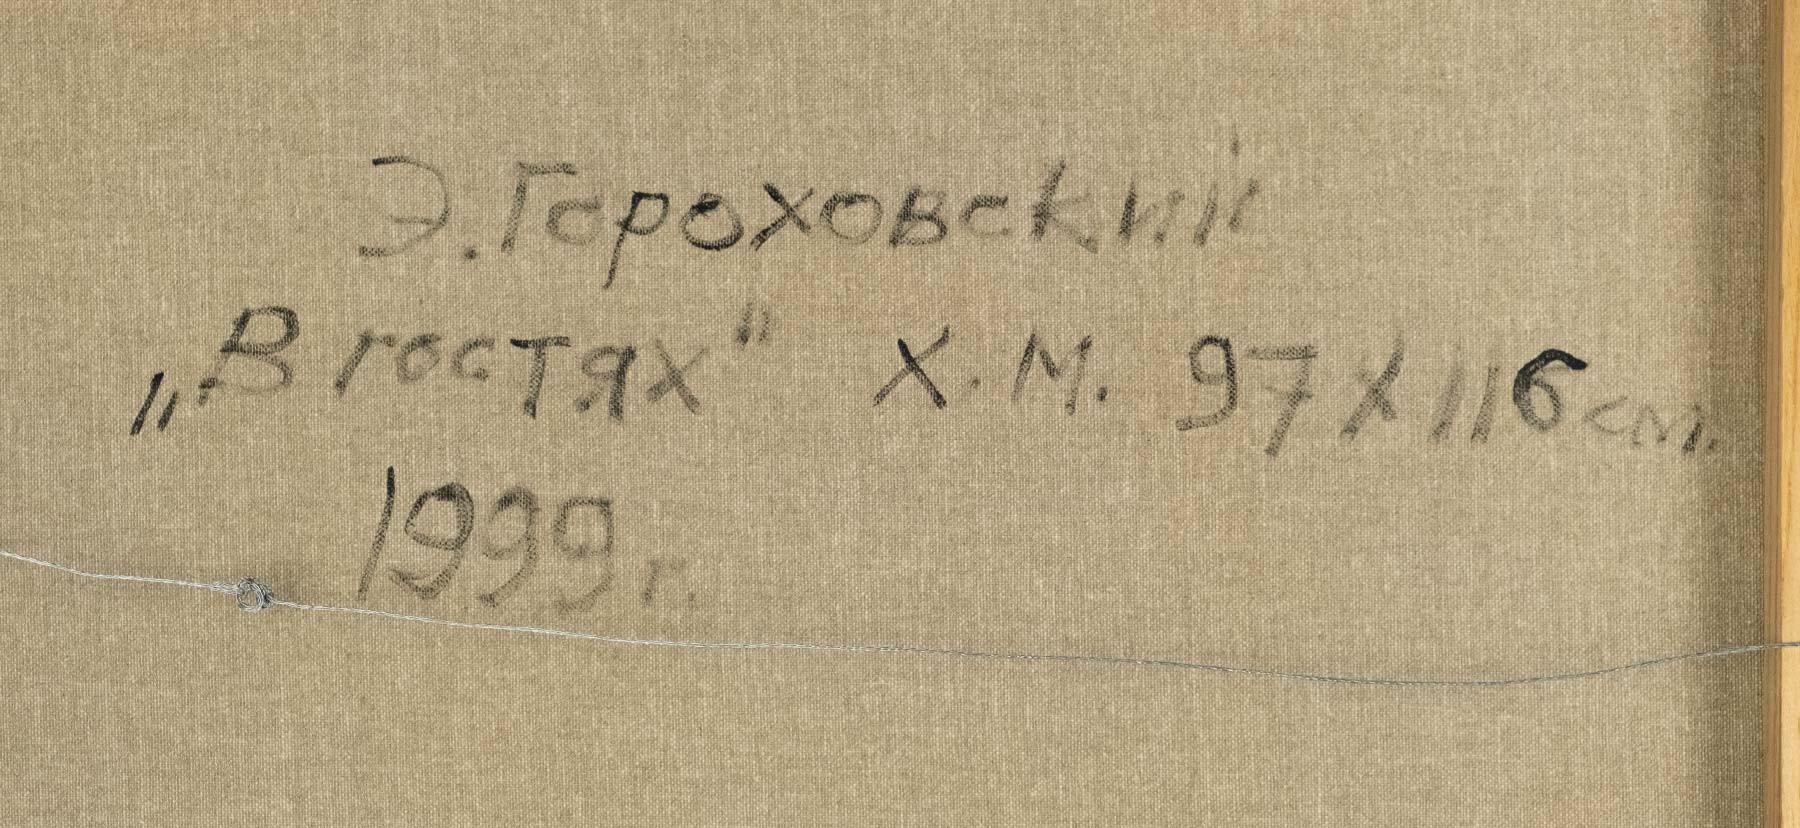 Э. Гороховский
„В гостях" Х. М. 97 Х 116 см.
1999 г.